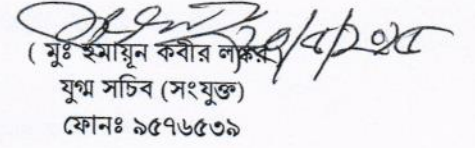 ২৭/৫/২০১৫
( মুঃ হুমায়ুন কবীর লস্কর)
যুগ্ম সচিব (সংযুক্ত)
ফোনঃ ৯৫৭৬৫৩৯